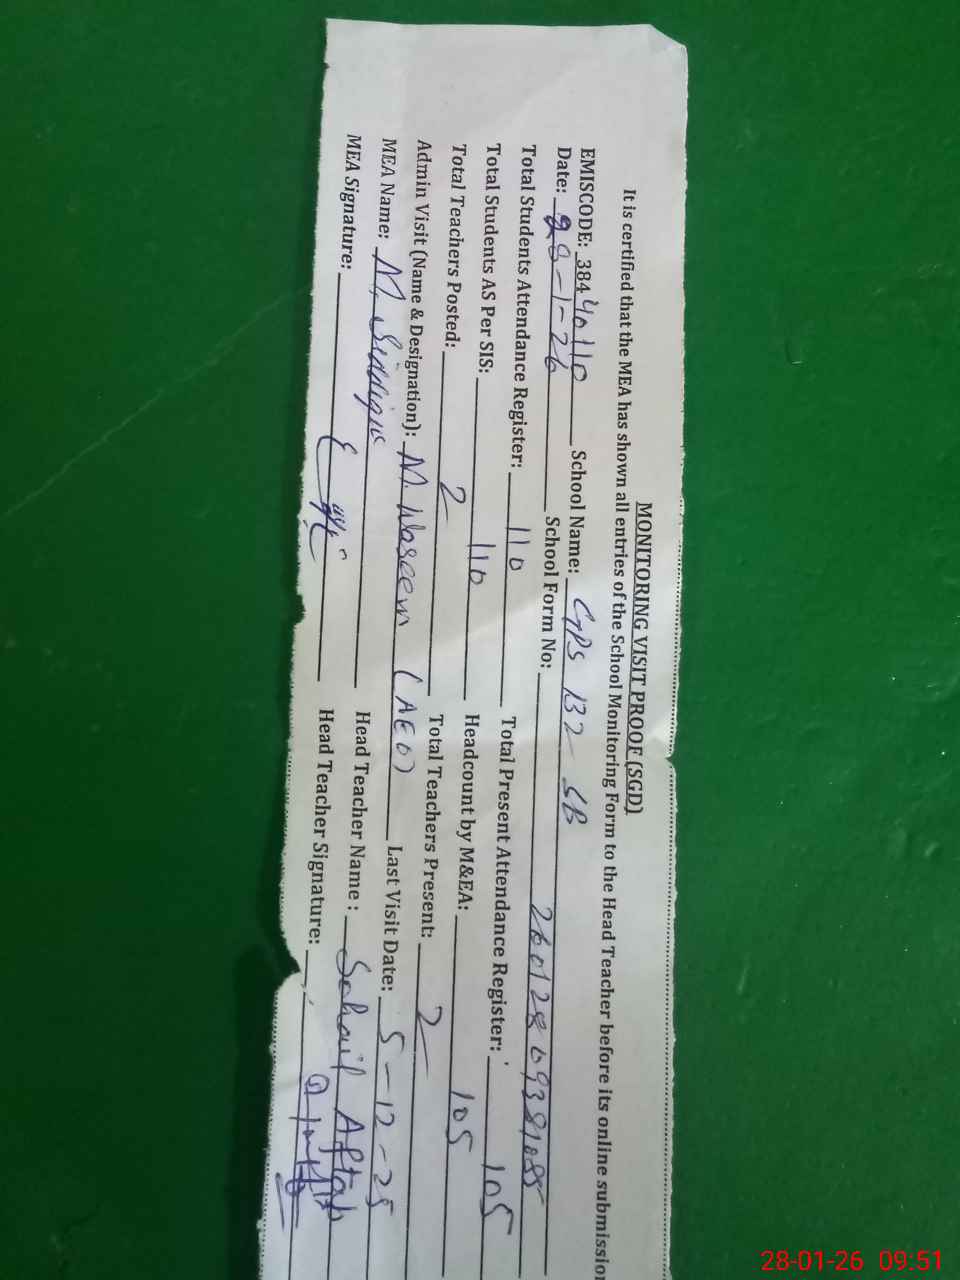 MONITORING VISIT PROOF (SGD)
It is certified that the MEA has shown all entries of the School Monitoring Form to the Head Teacher before its online submission
EMISCODE: 38440110 School Name: GPS 132 SB
Date: 28-1-26 School Form No:
Total Students Attendance Register: 110 Total Present Attendance Register: 105
Total Students AS Per SIS: 110 Headcount by M&EA: 105
Total Teachers Posted: 2 Total Teachers Present: 2
Admin Visit (Name & Designation): M. Waseem (AEO) Last Visit Date: 5-12-25
MEA Name: M. Siddique Head Teacher Name: Sohail Aftab
MEA Signature: Head Teacher Signature:
28-01-26 09:51